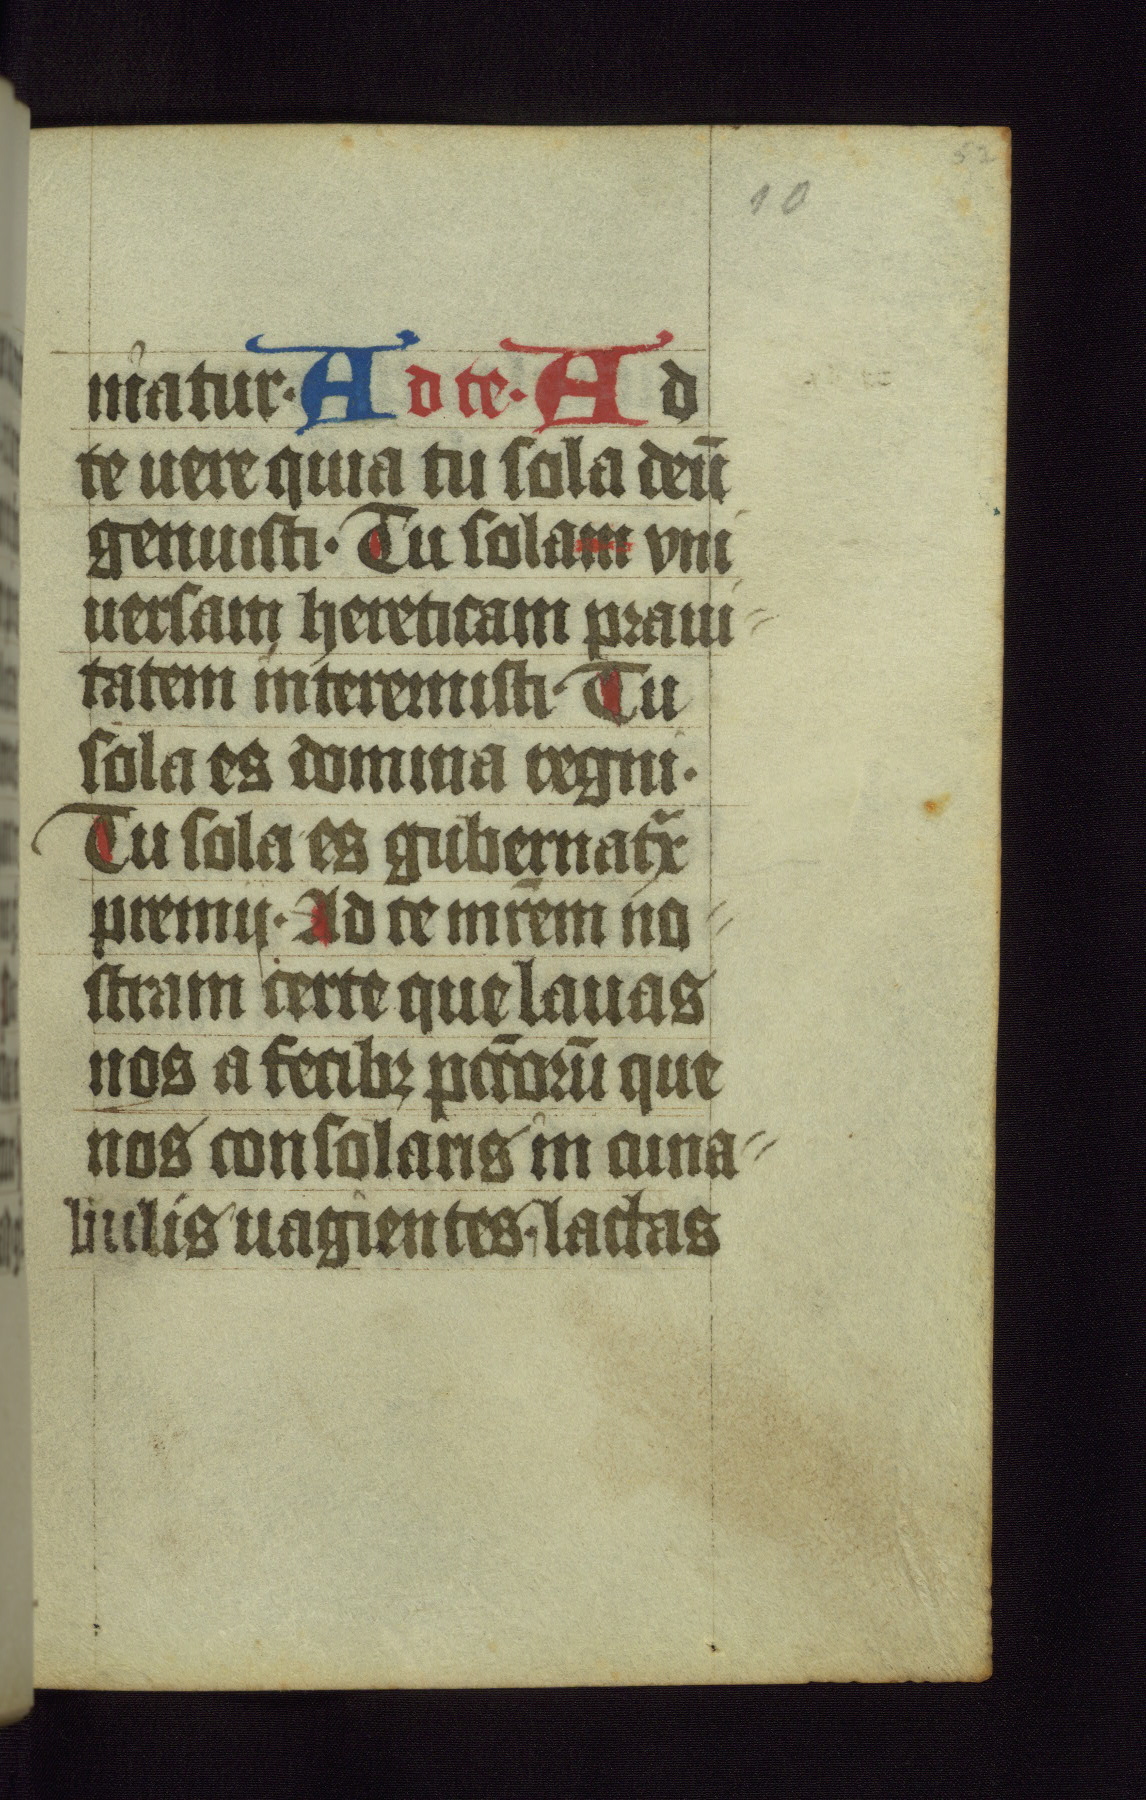 52
10
matur· Ad te· Ad
te uere quia tu sola deū
genuisti· Tu solam vni
uersam hereticam praui
tatem interemisti· Tu
sola es domina regni·
Tu sola es gubernatx̄
premij· Ad te mr̄em no
stram certe que lauas
nos a fecibꝫ pccorū que
nos consolaris in cuna
bulis uagientes· lactas